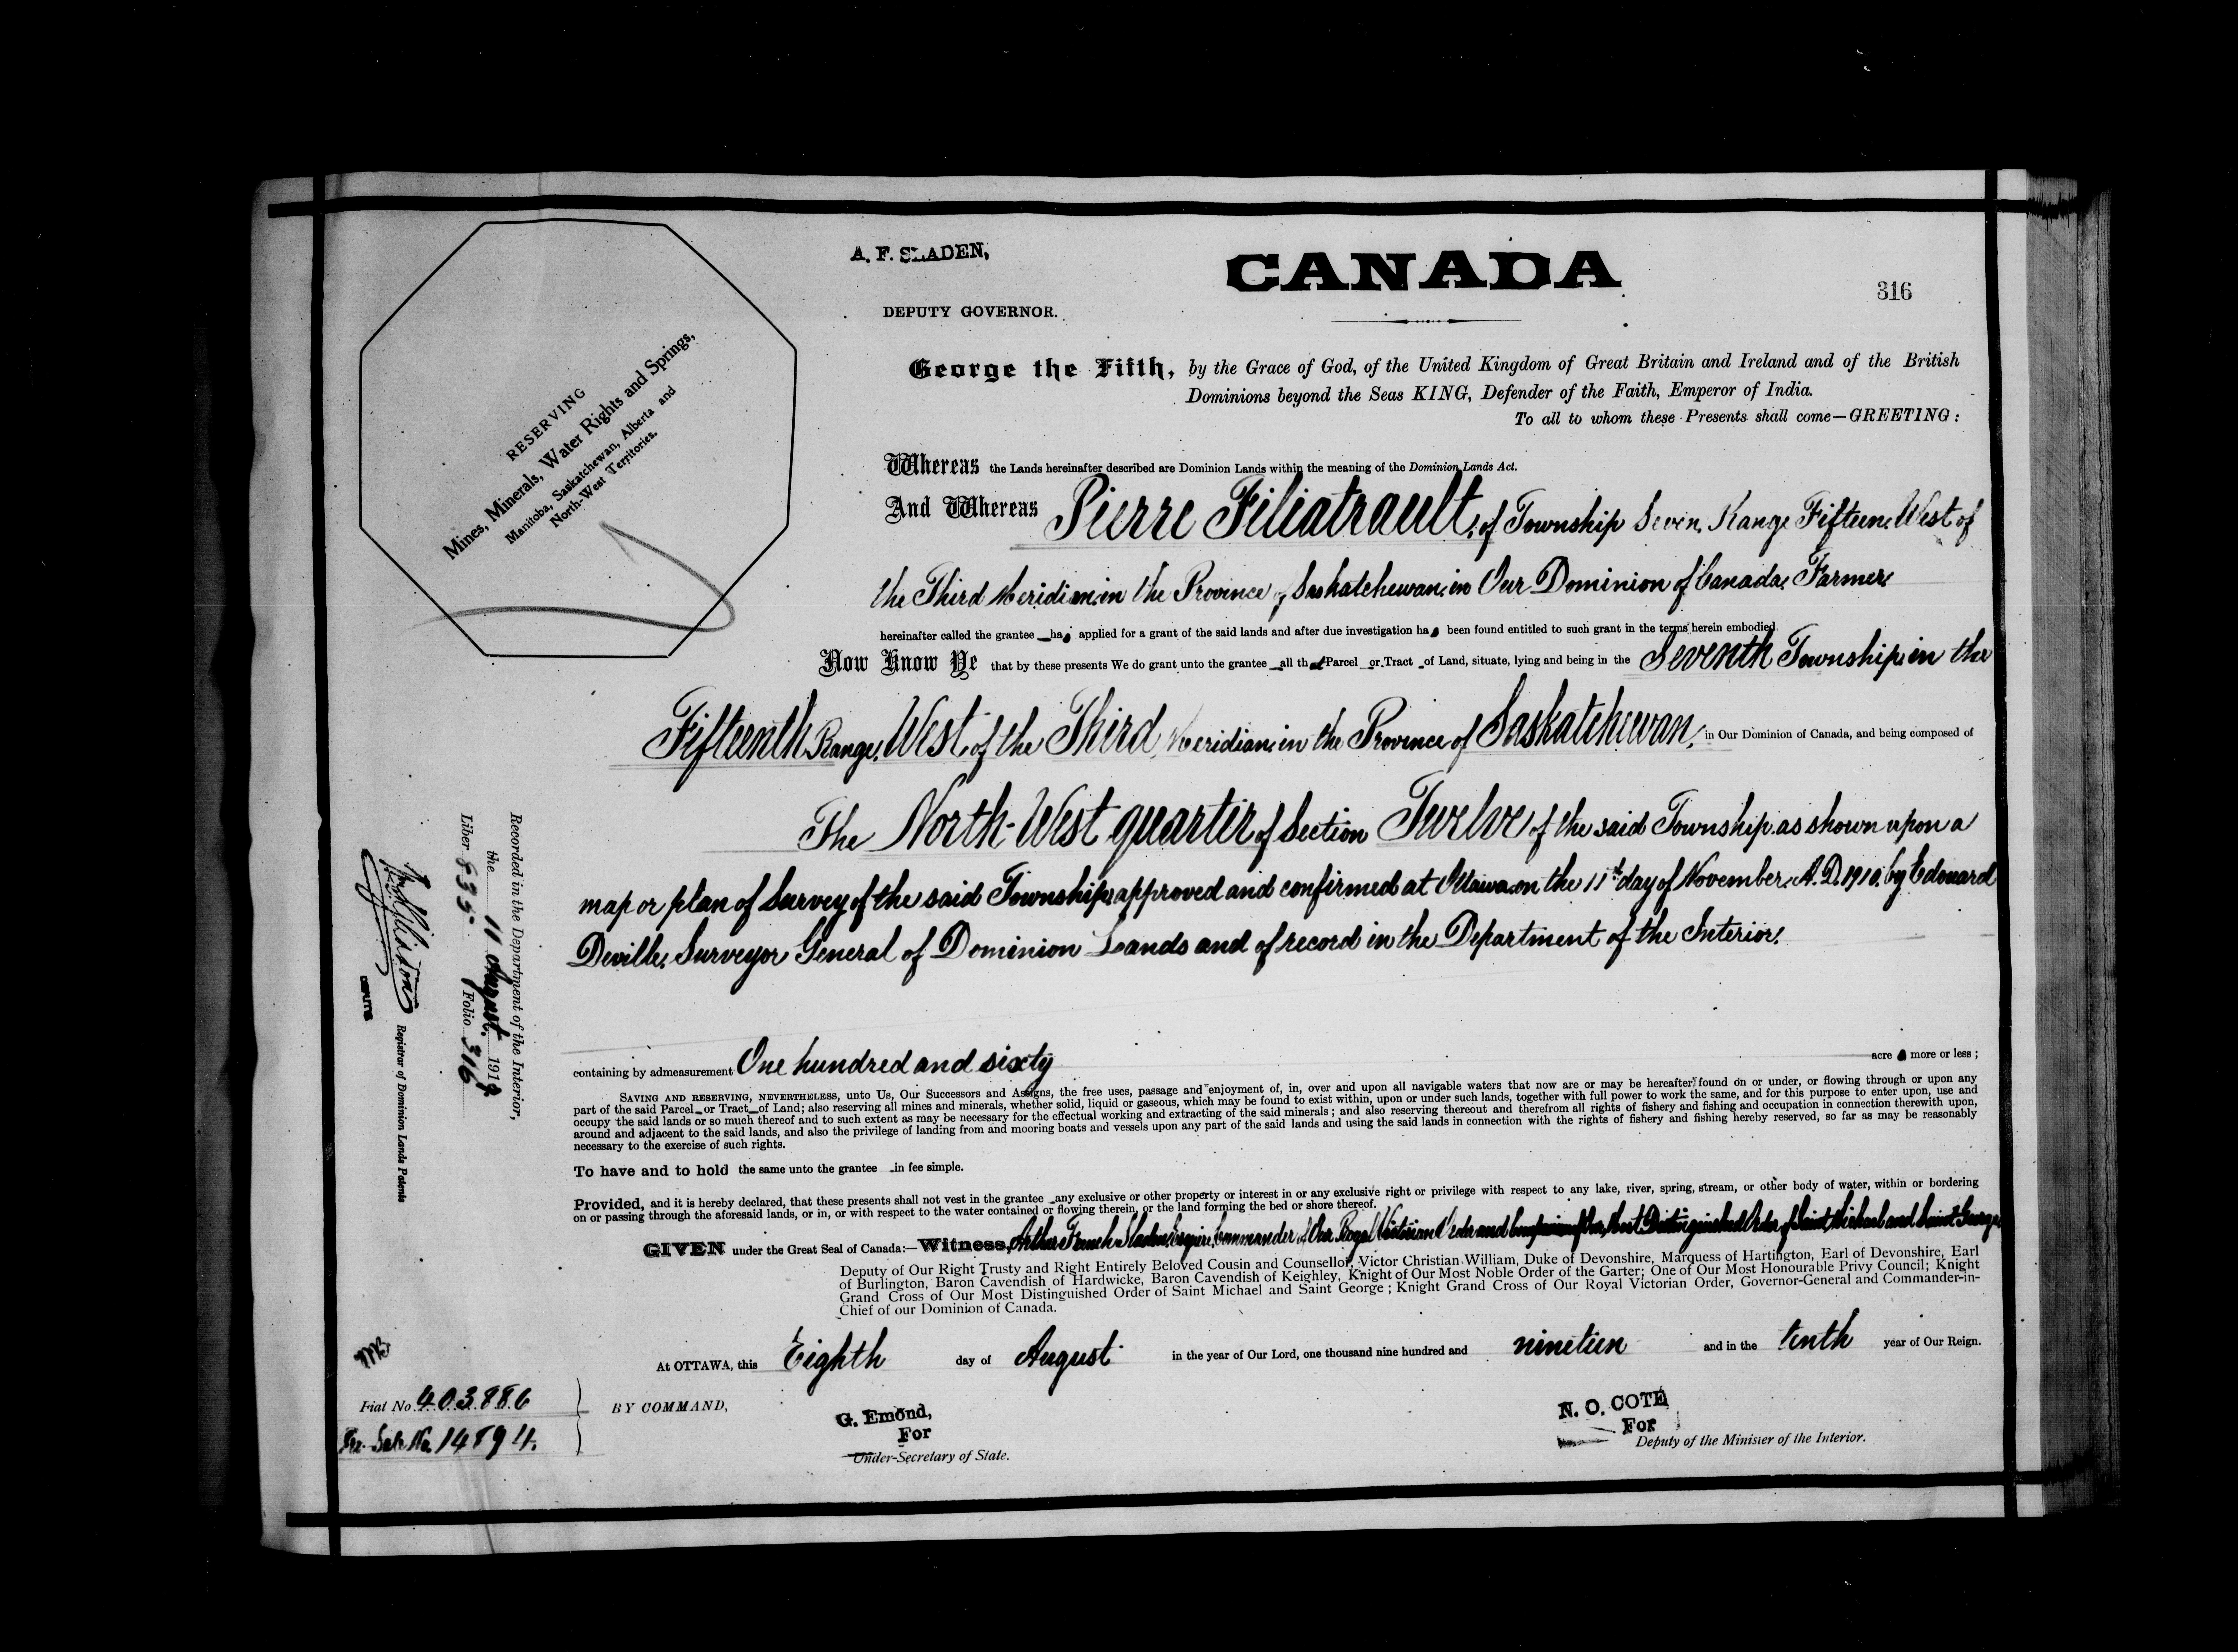 A. F. SLADEN,
DEPUTY GOVERNOR.
CANADA
316
RESERVING
Mines, Minerals, Water Rights and Springs,
Manitoba, Saskatchewan, Alberta and
North-West Territories.
George the Fifth, by the Grace of God, of the United Kingdom of Great Britain and Ireland and of the British
Dominions beyond the Seas KING, Defender of the Faith, Emperor of India.
To all to whom these Presents shall come—GREETING:
Whereas the Lands hereinafter described are Dominion Lands within the meaning of the Dominion Lands Act.
And Whereas Pierre Filiatrault, of Township Seven, Range Fifteen, West of
the Third Meridian, in the Province of Saskatchewan, in Our Dominion of Canada, Farmer,
hereinafter called the grantee has applied for a grant of the said lands and after due investigation has been found entitled to such grant in the terms herein embodied.
Now Know Ye that by these presents We do grant unto the grantee all that Parcel or Tract of Land, situate, lying and being in the Seventh Township, in the
Fifteenth Range, West of the Third Meridian, in the Province of Saskatchewan, in Our Dominion of Canada, and being composed of
The North-West quarter of Section Twelve of the said Township, as shown upon a
map or plan of Survey of the said Township, approved and confirmed at Ottawa, on the 11th day of November, A.D. 1910, by Edouard
Deville, Surveyor General of Dominion Lands and of record in the Department of the Interior.
containing by admeasurement One hundred and sixty acres more or less;
SAVING AND RESERVING, NEVERTHELESS, unto Us, Our Successors and Assigns, the free uses, passage and enjoyment of, in, over and upon all navigable waters that now are or may be hereafter found on or under, or flowing through or upon any
part of the said Parcel or Tract of Land; also reserving all mines and minerals, whether solid, liquid or gaseous, which may be found to exist within, upon or under such lands, together with full power to work the same, and for this purpose to enter upon, use and
occupy the said lands or so much thereof and to such extent as may be necessary for the effectual working and extracting of the said minerals; and also reserving thereout and therefrom all rights of fishery and fishing and occupation in connection therewith upon,
around and adjacent to the said lands, and also the privilege of landing from and mooring boats and vessels upon any part of the said lands and using the said lands in connection with the rights of fishery and fishing hereby reserved, so far as may be reasonably
necessary to the exercise of such rights.
To have and to hold the same unto the grantee in fee simple.
Provided, and it is hereby declared, that these presents shall not vest in the grantee any exclusive or other property or interest in or any exclusive right or privilege with respect to any lake, river, spring, stream, or other body of water, within or bordering
on or passing through the aforesaid lands, or in, or with respect to the water contained or flowing therein, or the land forming the bed or shore thereof.
GIVEN under the Great Seal of Canada:—Witness, Arthur French Sladen, Esquire, Commander of Our Royal Victorian Order and Companion of Our Most Distinguished Order of Saint Michael and Saint George,
Deputy of Our Right Trusty and Right Entirely Beloved Cousin and Counsellor, Victor Christian William, Duke of Devonshire, Marquess of Hartington, Earl of Devonshire, Earl
of Burlington, Baron Cavendish of Hardwicke, Baron Cavendish of Keighley, Knight of Our Most Noble Order of the Garter; One of Our Most Honourable Privy Council; Knight
Grand Cross of Our Most Distinguished Order of Saint Michael and Saint George; Knight Grand Cross of Our Royal Victorian Order, Governor-General and Commander-in-
Chief of our Dominion of Canada.
At OTTAWA, this Eighth day of August in the year of Our Lord, one thousand nine hundred and nineteen and in the tenth year of Our Reign.
BY COMMAND,
G. Emond,
For
Under-Secretary of State.
N. O. COTE
For
Deputy of the Minister of the Interior.
Recorded in the Department of the Interior,
the 11 August 1919
Liber 535 Folio 316
Registrar of Dominion Lands Patents
DEPUTY
Fiat No. 403886
Sale No. 14894.